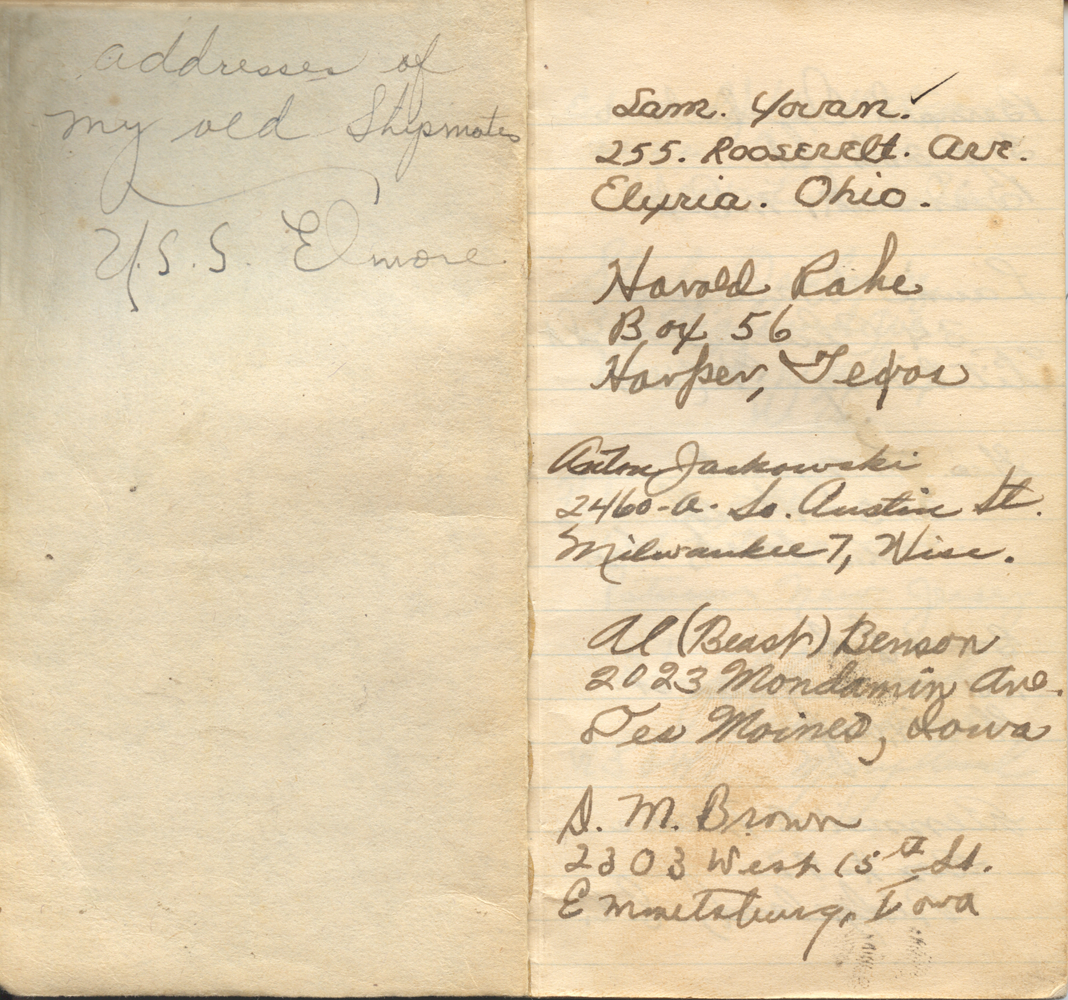 addresses of
my old Shipmates
U.S.S. Elmore
Sam. Yovan. ✓
255. Roosevelt. Ave.
Elyria. Ohio.
Harold Rahe
Box 56
Harper, Texas
Anton Jaskowski
2460-A. So. Austin St.
Milwaukee 7, Wisc.
Al (Beast) Benson
2023 Mondamin Ave.
Des Moines, Iowa
D. M. Brown
2303 West 15th St.
Emmetsburg, Iowa